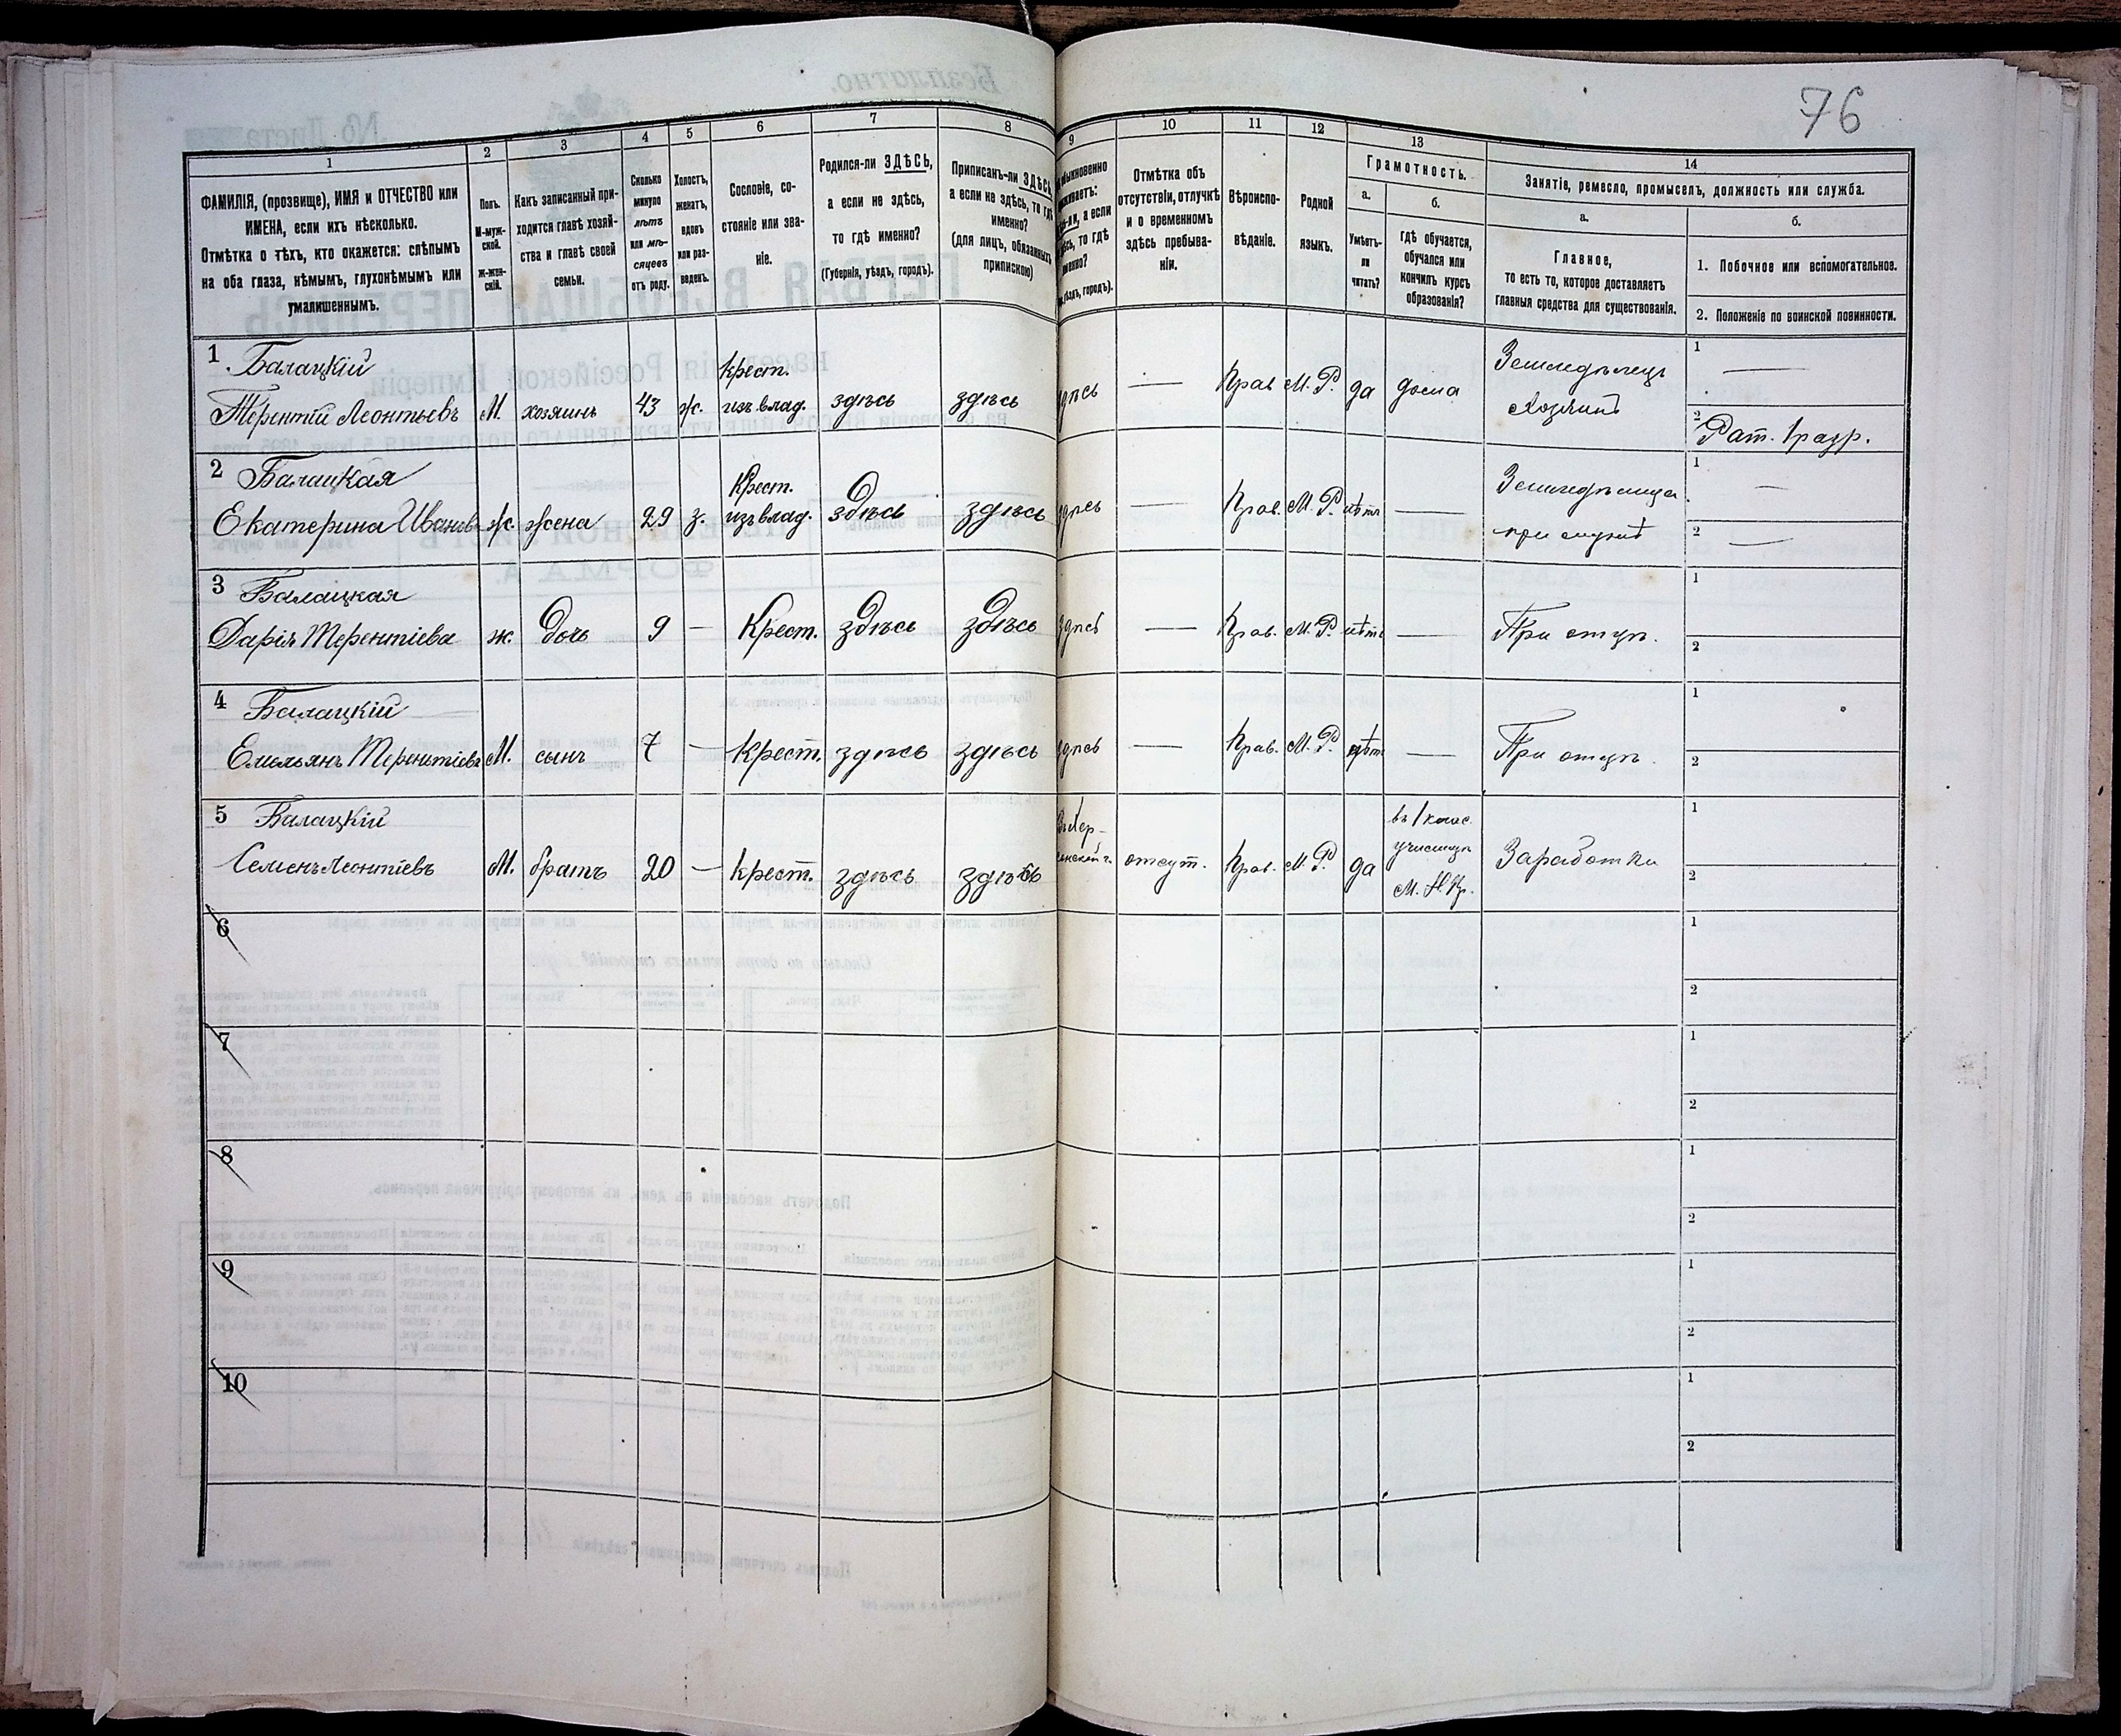 76
1
2
3
4
5
6
7
8
9
10
11
12
13
14
ФАМИЛІЯ, (прозвище), ИМЯ и ОТЧЕСТВО или
ИМЕНА, если ихъ нѣсколько.
Отмѣтка о тѣхъ, кто окажется: слѣпымъ
на оба глаза, нѣмымъ, глухонѣмымъ или
умалишеннымъ.
Полъ.
М-муж-
ской.
Ж-жен-
скій.
Какъ записанный при-
ходится главѣ хозяй-
ства и главѣ своей
семьи.
Сколько
минуло
лѣтъ
или мѣ-
сяцевъ
отъ роду.
Холостъ,
женатъ,
вдовъ
или раз-
веденъ.
Сословіе, со-
стояніе или зва-
ніе.
Родился-ли ЗДѢСЬ,
а если не здѣсь,
то гдѣ именно?
(Губернія, уѣздъ, городъ).
Приписанъ-ли ЗДѢСЬ,
а если не здѣсь, то гдѣ
именно?
(для лицъ, обязанныхъ
припискою)
Отмѣтка объ
отсутствіи, отлучкѣ
и о временномъ
здѣсь пребыва-
ніи.
Вѣроиспо-
вѣданіе.
Родной
языкъ.
Грамотность.
а.
Умѣетъ-
ли
читать?
б.
гдѣ обучается,
обучался или
кончилъ курсъ
образованія?
Занятіе, ремесло, промыселъ, должность или служба.
а.
Главное,
то есть то, которое доставляетъ
главныя средства для существованія.
б.
1. Побочное или вспомогательное.
2. Положеніе по воинской повинности.
1. Балацкій
Терентій Леонтьевъ М. хозяинъ 43 ж. крест. изъ влад. здѣсь здѣсь здѣсь — Прав. М.Р. да дома Земледѣлецъ хозяинъ
1 —
2 Рат. 1 разр.
2 Балацкая
Екатерина Иванов ж. жена 29 з. Крест. изъ влад. здѣсь здѣсь здѣсь — Прав. М.Р. нѣтъ —
1 —
2 —
3 Балацкая
Дарія Терентіева ж. дочь 9 — Крест. здѣсь здѣсь здѣсь — Прав. М.Р. нѣтъ — При отцѣ.
1
2
4 Балацкій
Емельянъ Терентіевъ М. сынъ 7 — Крест. здѣсь здѣсь здѣсь — Прав. М.Р. нѣтъ — При отцѣ.
1
2
5 Балацкій
Семенъ Леонтіевъ М. братъ 20 — крест. здѣсь здѣсь отсут. Прав. М.Р. да въ 1 клас. училищѣ М. Н. Пр. Заработки
1
2
6
1
2
7
1
2
8
1
2
9
1
2
10
1
2